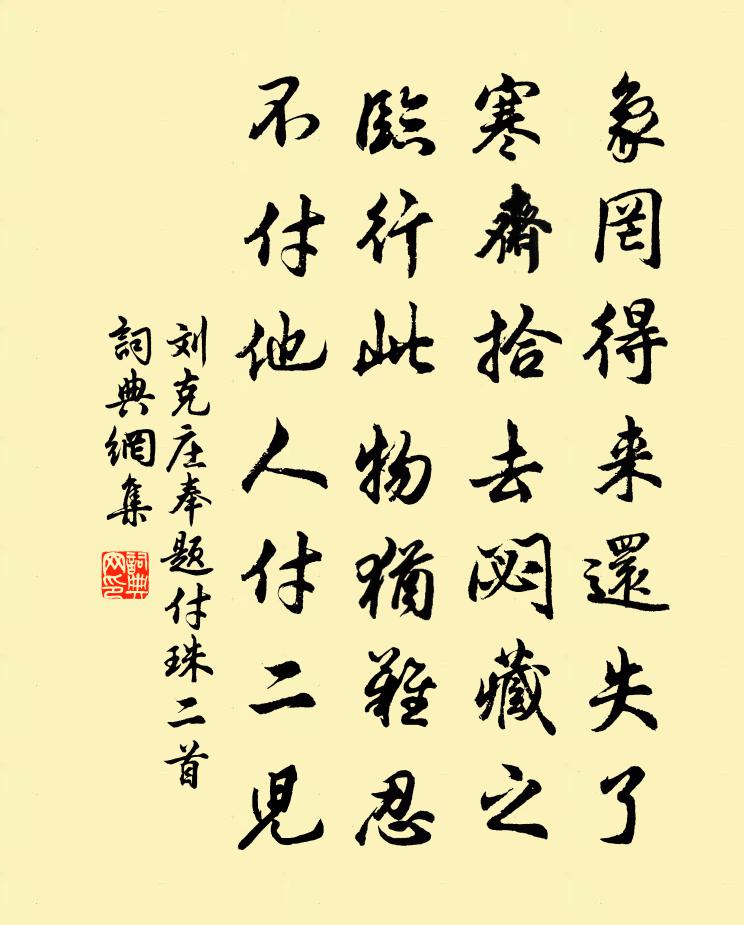 象罔得来還失了
寒齋拾去閟藏之
臨行此物猶難忍
不付他人付二兒
刘克庄奉题付珠二首
詞典網集
詞典网印